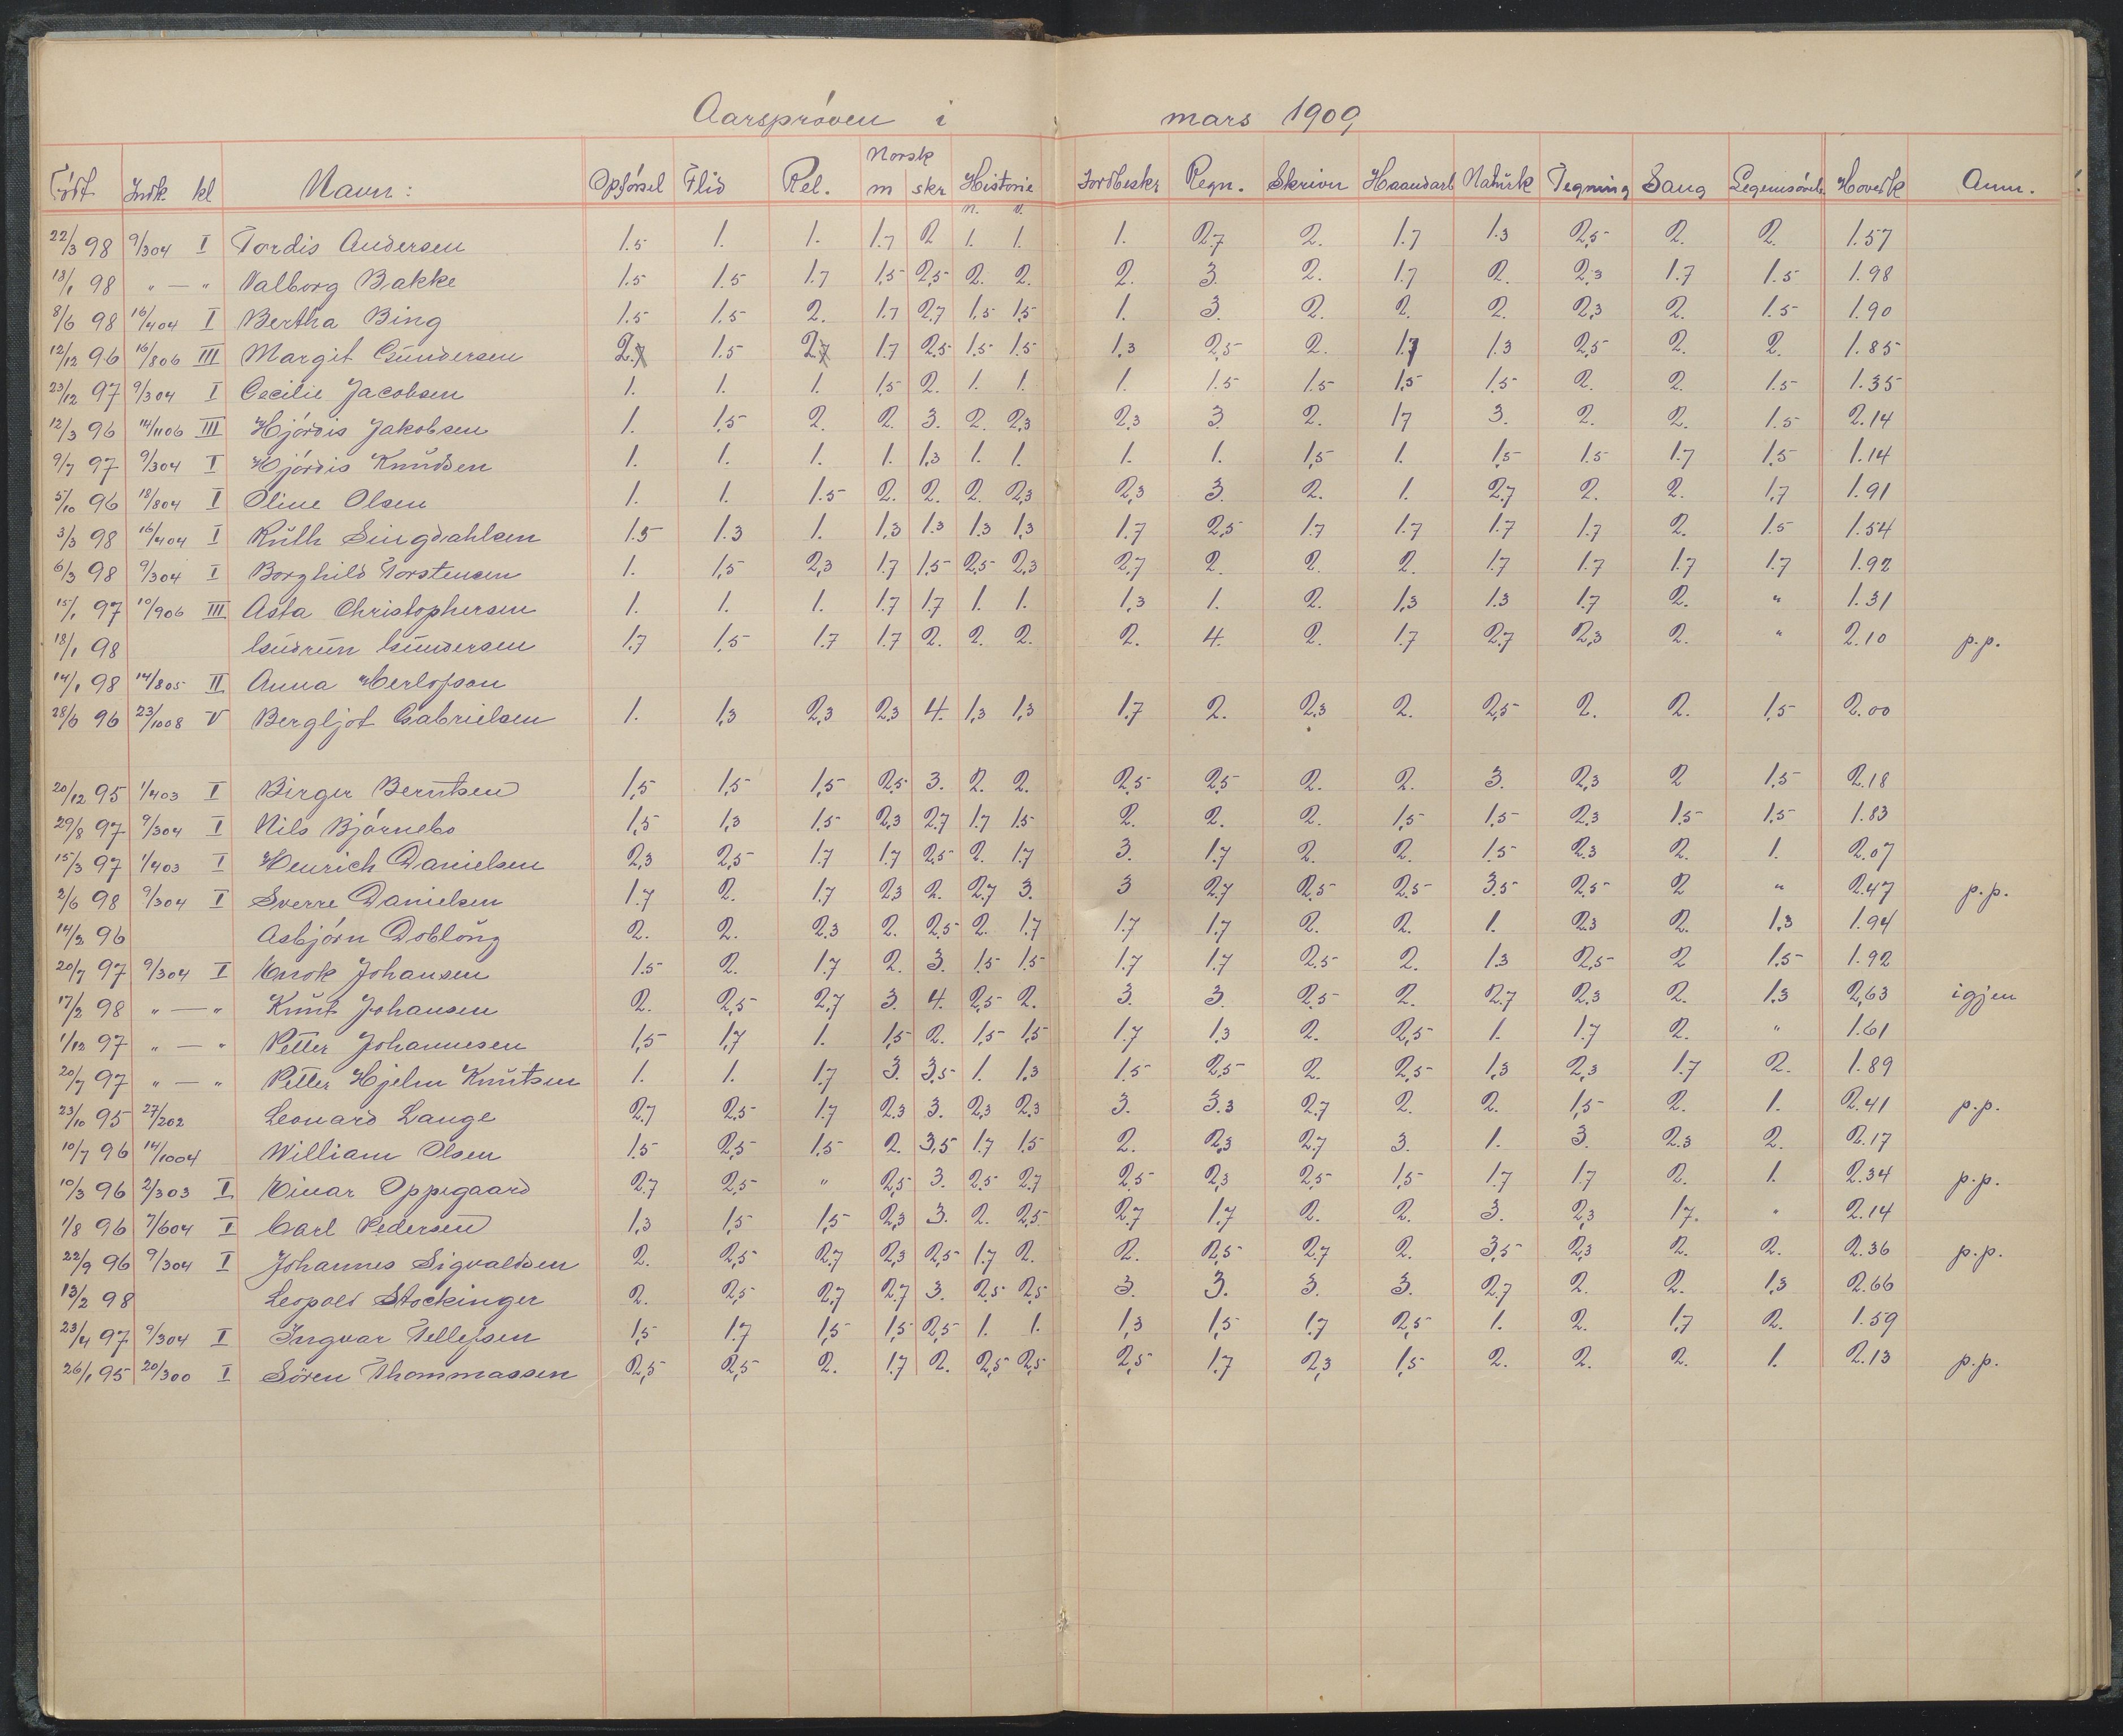 Aarsprøven i mars 1909
Født Indk kl Navn: Opførsel Flid Rel. Norsk m skr Historie n. v. Jordbeskr Regn. Skrivn Haandarb Naturk Tegning Sang Legemsøvels Hovedk Anm.
22/3 98 9/304 I Tordis Andersen 1.5 1. 1. 1.7 2 1. 1. 1. 2.7 2. 1.7 1.3 2,5 2. 2. 1.57
18/1 98 " — " Valborg Bakke 1.5 1.5 1.7 1,5 2,5 2. 2. 2. 3. 2. 1.7 2. 2.3 1.7 1.5 1.98
8/6 98 16/404 I Bertha Bing 1.5 1.5 2. 1.7 2.7 1.5 1.5 1. 3. 2. 2. 2. 2,3 2. 1.5 1.90
12/12 96 16/806 III Margit Gundersen 2.7 1.5 2.7 1.7 2.5 1.5 1.5 1,3 2,5 2. 1.7 1.3 2.5 2. 2. 1.85
23/12 97 9/304 I Cecilie Jacobsen 1. 1. 1. 1,5 2. 1. 1. 1. 1.5 1.5 1,5 1.5 2. 2. 1.5 1.35
12/3 96 14/1106 III Hjørdis Jakobsen 1. 1,5 2. 2. 3. 2. 2,3 2,3 3. 2. 1.7 3. 2. 2. 1.5 2.14
9/7 97 9/304 I Hjørdis Knudsen 1. 1. 1. 1. 1,3 1. 1. 1. 1. 1,5 1. 1,5 1.5 1.7 1,5 1.14
5/10 96 18/804 I Oline Olsen 1. 1. 1.5 2. 2. 2. 2,3 2,3 3. 2. 1. 2.7 2. 2. 1,7 1.91
3/3 98 16/404 I Ruth Singdahlsen 1.5 1.3 1. 1,3 1.3 1.3 1,3 1.7 2,5 1.7 1.7 1.7 1.7 2. 1.5 1.54
6/3 98 9/304 I Borghild Torstensen 1. 1,5 2,3 1.7 1,5 2,5 2,3 2,7 2. 2. 2. 1.7 1.7 1.7 1.7 1.92
15/1 97 10/906 III Asta Christophersen 1. 1. 1. 1.7 1.7 1. 1. 1,3 1. 2. 1,3 1.3 1.7 2. " 1.31
18/1 98 Gudrun Gundersen 1,7 1,5 1.7 1.7 2. 2. 2. 2. 4. 2. 1.7 2.7 2,3 2. " 2.10 p.p.
14/1 98 14/805 II Anna Herlofson
28/6 96 23/1008 V Bergljot Gabrielsen 1. 1,3 2,3 2,3 4. 1,3 1,3 1.7 2. 2,3 2. 2,5 2. 2. 1,5 2.00
20/12 95 1/403 I Birger Berntsen 1,5 1,5 1,5 2,5 3. 2. 2. 2,5 2,5 2. 2. 3. 2,3 2 1.5 2.18
29/8 97 9/304 I Nils Bjørnebo 1,5 1,3 1.5 2,3 2.7 1.7 1.5 2. 2. 2. 1,5 1.5 2.3 1.5 1.5 1.83
15/3 97 1/403 I Henrich Danielsen 2,3 2,5 1.7 1.7 2,5 2. 1.7 3. 1.7 2. 2. 1.5 2.3 2. 1. 2.07
2/6 98 9/304 I Sverre Danielsen 1.7 2. 1.7 2,3 2. 2.7 3. 3 2.7 2.5 2.5 3.5 2.5 2 " 2.47 p.p.
14/3 96 Asbjørn Doblöug 2. 2. 2.3 2. 2.5 2. 1.7 1.7 1.7 2. 2. 1. 2.3 2. 1,3 1.94
20/7 97 9/304 I Enok Johansen 1.5 2. 1.7 2. 3. 1.5 1.5 1.7 1.7 2.5 2. 1.3 2,5 2 1.5 1.92
17/2 98 " — " Knut Johansen 2. 2,5 2,7 3. 4. 2,5 2. 3. 3. 2.5 2. 2.7 2.3 2. 1.3 2,63 igjen
1/12 97 " — " Petter Johannesen 1,5 1,7 1. 1,5 2. 1,5 1,5 1.7 1.3 2. 2,5 1. 1.7 2. " 1.61
20/7 97 " — " Petter Hjelm Knutsen 1. 1. 1.7 3. 3.5 1. 1.3 1.5 2,5 2. 2,5 1,3 2,3 1.7 2. 1.89
23/10 95 27/202 Leonard Lange 2.7 2.5 1.7 2.3 3. 2,3 2.3 3. 3.3 2.7 2. 2. 1,5 2. 1. 2.41 p.p.
10/7 96 14/1004 William Olsen 1.5 2,5 1.5 2. 3,5 1.7 1.5 2. 2,3 2.7 3. 1. 3. 2.3 2. 2.17
10/3 96 2/303 I Einar Oppegaard 2.7 2,5 " 2,5 3. 2.5 2.7 2.5 2,3 2,5 1,5 1.7 1.7 2. 1. 2.34 p.p.
1/8 96 7/604 I Carl Pedersen 1,3 1,5 1,5 2,3 3. 2. 2,5 2.7 1.7 2. 2. 3. 2,3 1.7. " 2.14
22/9 96 9/304 I Johannes Sigvaldsen 2. 2,5 2.7 2,3 2,5 1.7 2. 2. 2,5 2.7 2. 3,5 2,3 2. 2. 2.36 p.p.
13/2 98 Leopold Stockinger 2. 2,5 2,7 2.7 3. 2.5 2,5 3. 3. 3. 3. 2.7 2. 2. 1,3 2.66
23/4 97 9/304 I Ingvar Tellefsen 1,5 1.7 1,5 1,5 2,5 1. 1. 1,3 1,5 1.7 2,5 1. 2. 1,7 2. 1.59
26/1 95 20/300 I Søren Thommassen 2,5 2,5 2. 1.7 2. 2,5 2,5 2,5 1.7 2,3 1,5 2. 2. 2. 1. 2.13 p.p.